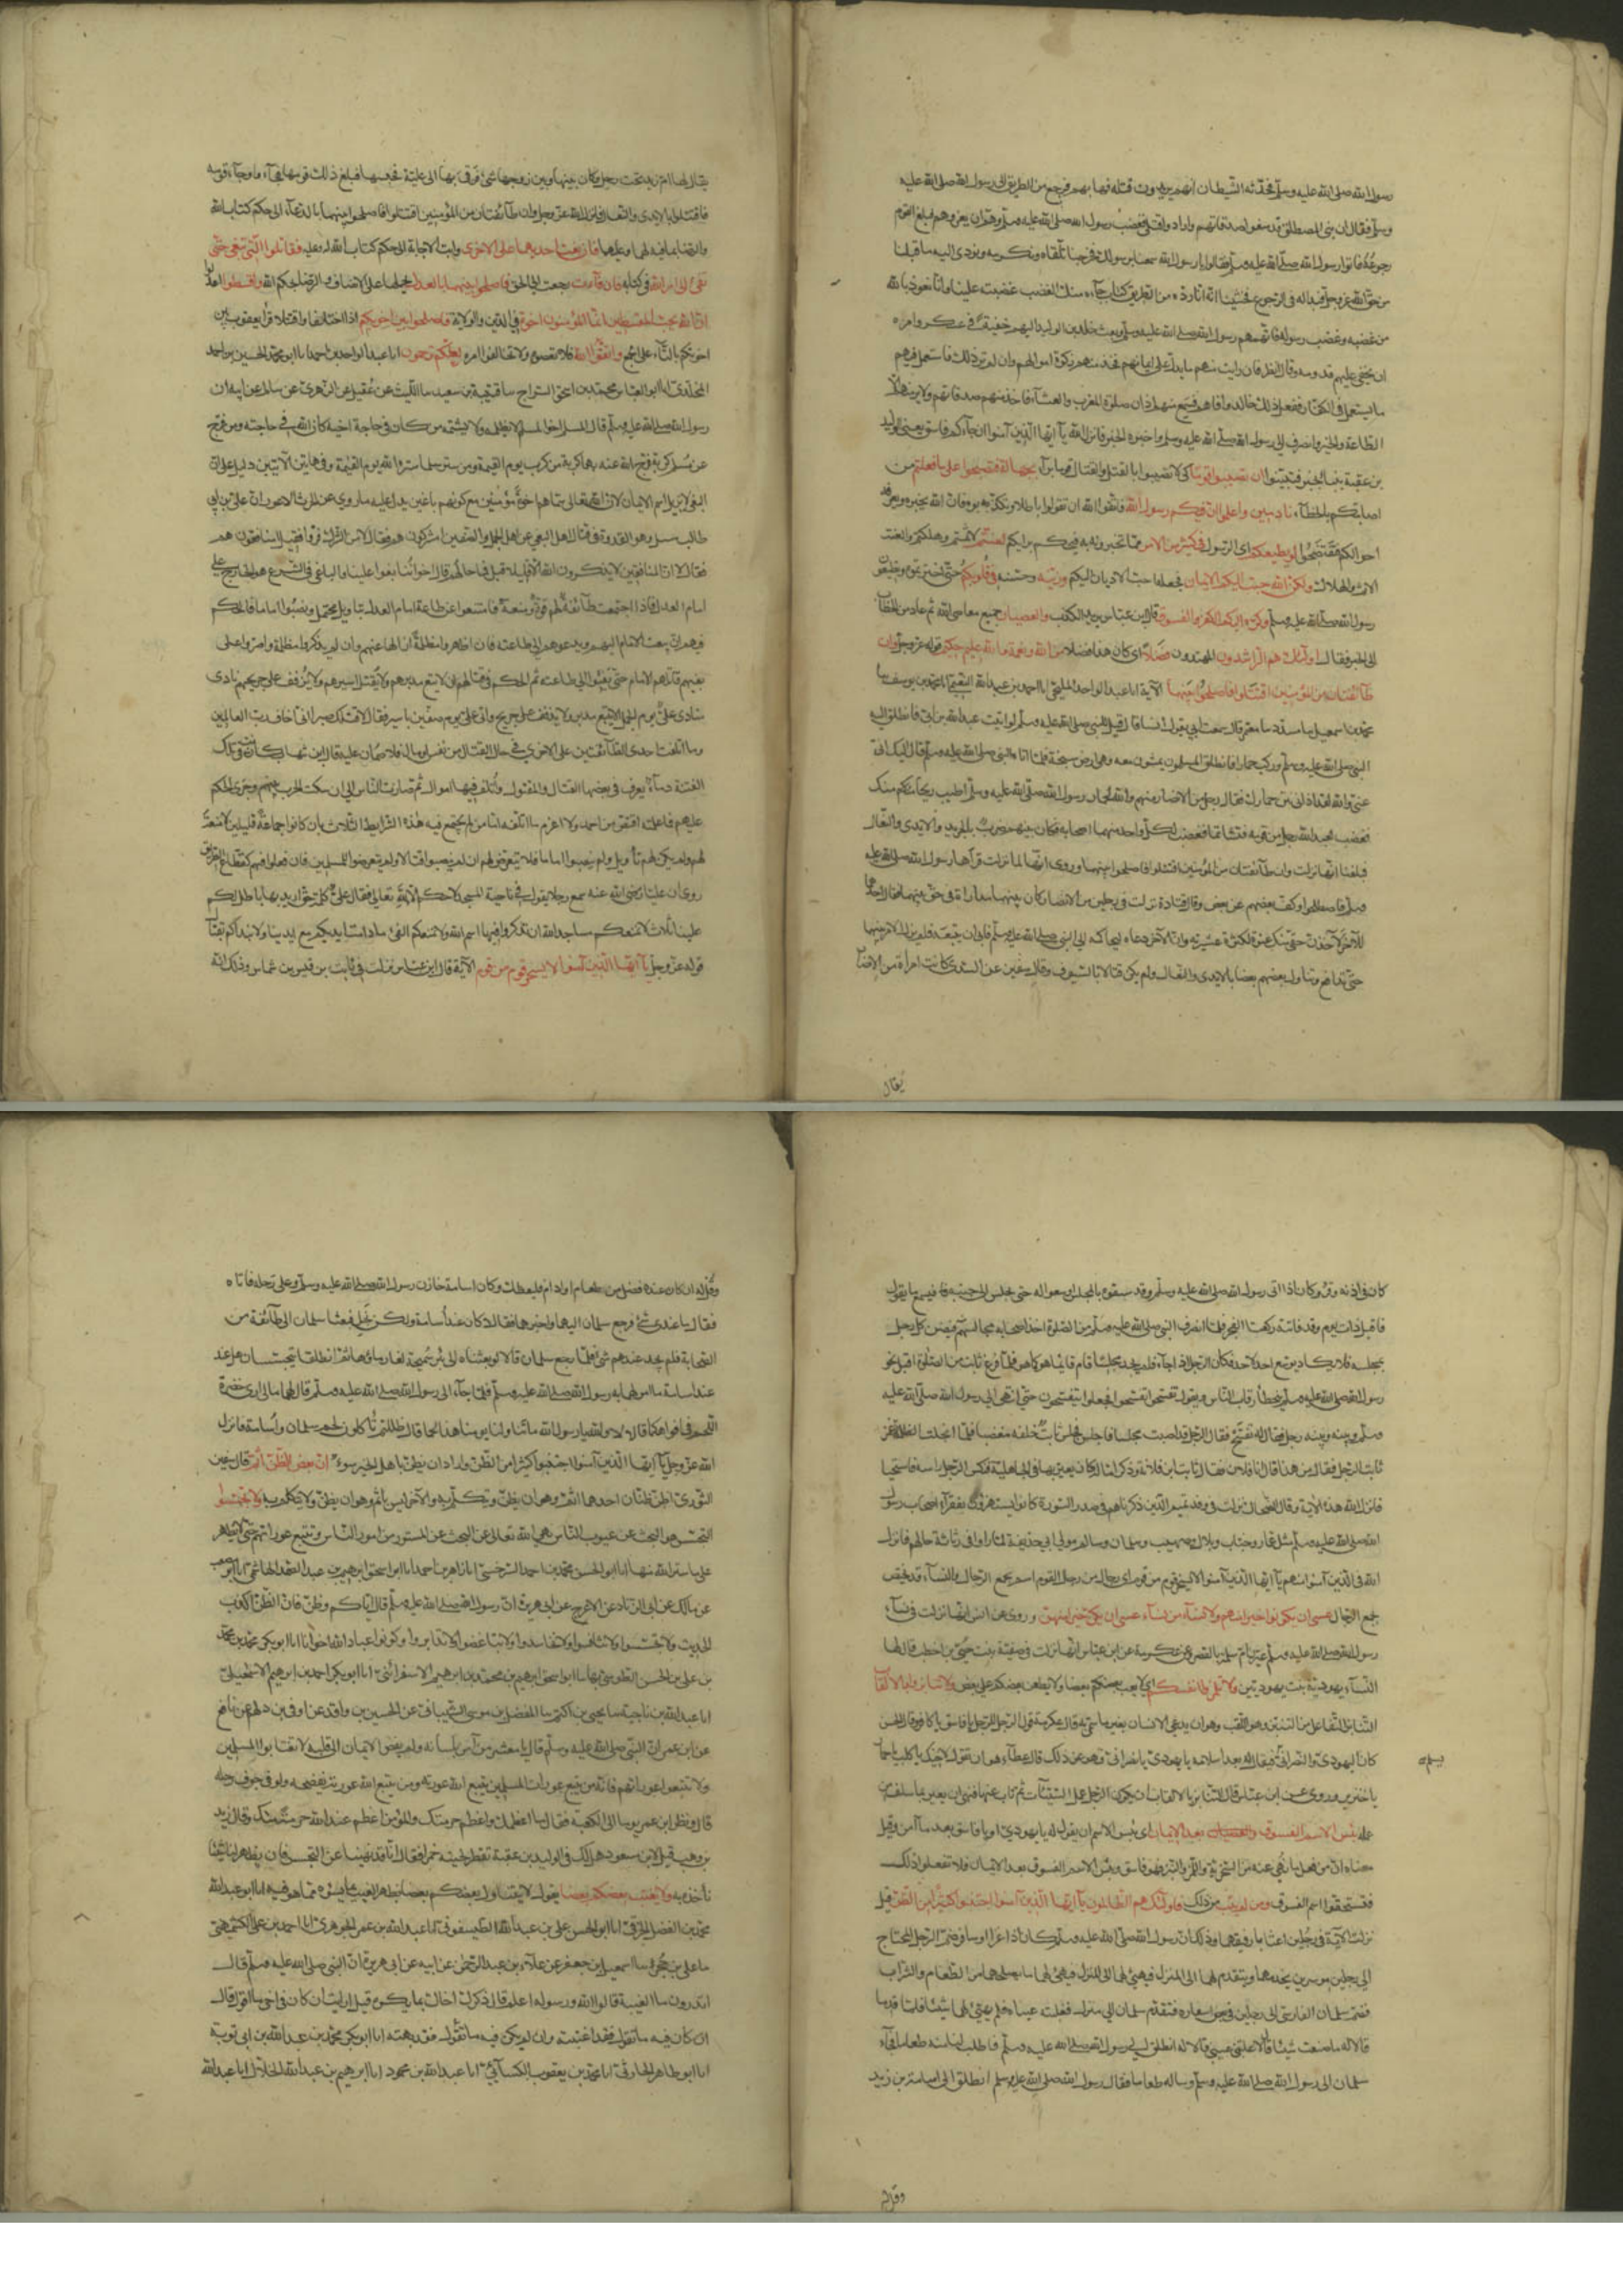 رسول الله صلى الله عليه وسلم فحدثه الشيطان انهم يريدون قتله فهابهم فرجع من الطريق الى رسول الله صلى الله عليه
وسلم فقال ان بنى المصطلق قد منعوا صدقاتهم وارادوا قتلى فغضب رسول الله صلى الله عليه وسلم وهم ان يغزوهم فبلغ القوم
رجوعه فاتوا رسول الله صلى الله عليه وسلم فقالوا يا رسول الله سمعنا برسولك فخرجنا نتلقاه ونكرمه ونودى اليه ما قبلنا
من حق الله عز وجل فبدا له فى الرجوع فخشينا انه انما رده من الطريق كتاب جاءه منك لغضب غضبته علينا وانا نعوذ بالله
من غضبه وغضب رسوله فاتهمهم رسول الله صلى الله عليه وسلم وبعث خلد بن الوليد اليهم خفية فى عسكر وامره
ان يخفى عليهم قدومه وقال انظر فان رايت منهم ما يدل على ايمانهم فخذ منهم زكوة اموالهم وان لم تر ذلك فاستعمل فيهم
ما يستعمل فى الكفار ففعل ذلك خالد وافاهم فسمع منهم اذان صلوة المغرب والعشآء فاخذ منهم صدقاتهم ولم ير منهم الا
الطاعة والخير وانصرف الى رسول الله صلى الله عليه وسلم واخبره الخبر فانزل الله يآ ايها الذين آمنوا ان جآءكم فاسق يعنى الوليد
بن عقبة بنبا بخبر فتبينوا ان تصيبوا قوما كى لا تصيبوا بالقتل والقتال قوما برآء بجهالة فتصبحوا على ما فعلتم من
اصابتكم بالخطآء نادمين واعلموا ان فيكم رسول الله فاتقوا الله ان تقولوا باطلا وتكذبوه فان الله يخبره ويعرفه
احوالكم فتفتضحوا لو يطيعكم اى الرسول فى كثير من الامر مما تخبرونه به فيحكم برايكم لعنتم لاثمتم وهلكتم والعنت
الاثم والهلاك ولكن الله حبب اليكم الايمان فجعله احب الاديان اليكم وزينه وحسنه فى قلوبكم حتى اخترتموه وتطيعون
رسول الله صلى الله عليه وسلم وكره اليكم الكفر والفسوق قال ابن عباس يريد الكذب والعصيان جميع معاصى الله ثم عاد من الخطاب
الى الخبر فقال اولئك هم الراشدون المهتدون فضلا اى كان هذا فضلا من الله ونعمة والله عليم حكيم قوله عز وجل وان
طآئفتان من المؤمنين اقتتلوا فاصلحوا بينهما الآية انا عبد الواحد المليحى انا احمد بن عبد الله النعيمى انا محمد بن يوسف نا
محمد بن اسمعيل نا مسدد نا معتمر قال سمعت ابى يقول ان انسا قال قيل للنبى صلى الله عليه وسلم لو اتيت عبد الله بن ابى فانطلق اليه
النبى صلى الله عليه وسلم وركب حمارا فانطلق المسلمون يمشون معه وهى ارض سبخة فلما اتاه النبى صلى الله عليه وسلم قال اليك
عنى والله لقد آذانى نتن حمارك فقال رجل من الانصار منهم والله لحمار رسول الله صلى الله عليه وسلم اطيب ريحا منكم منك
فغضب لعبد الله رجل من قومه فتشاتما فغضب لكل واحد منهما اصحابه فكان بينهم ضرب بالجريد والايدى والنعال
فبلغنا انها نزلت وان طآئفتان من المؤمنين اقتتلوا فاصلحوا بينهما ويروى انها لما نزلت قرآها رسول الله صلى الله عليه
وسلم فاصطلحوا وكف بعضهم عن بعض وقال قتادة نزلت فى رجلين من الانصار كان بينهما مدارآة فى حق بينهما فقال احدهما
للآخر لآخذن حقى منك عنوة لكثرة عشيرته وان الآخر دعاه ليحاكمه الى النبى صلى الله عليه وسلم فابى ان يتبعه فلم يزل الامر بينهما
حتى تدافعوا وتناول بعضهم بعضا بالايدى والنعال ولم يكن قتالا بالسيوف وقال سفين عن السدى كانت امرأة من الانصار
يقال
يقال لها ام زيد تحت رجل وكان بينها وبين زوجها شئ فرقى بها الى علية فحبسها فبلغ ذلك قومها فجآءوا وجآء قومه
فاقتتلوا بالايدى والنعال فانزل الله عز وجل وان طآئفتان من المؤمنين اقتتلوا فاصلحوا بينهما بالدعآء الى حكم كتاب الله
والرضا بما فيه لهما وعليهما فان بغت احديهما على الاخرى وابت الاجابة الى حكم كتاب الله فقاتلوا التى تبغى حتى
تفئ الى امر الله فى كتابه فان فآءت رجعت الى الحق فاصلحوا بينهما بالعدل بحملهما على الانصاف والرضا بحكم الله واقسطوا اعدلوا
ان الله يحب المقسطين انما المؤمنون اخوة فى الدين والولاية فاصلحوا بين اخويكم اذا اختلفا واقتتلا قرأ يعقوب بين
اخوتكم بالتآء على الجمع واتقوا الله فلا تعصوه ولا تخالفوا امره لعلكم ترحمون انا عبد الواحد بن احمد انا ابو محمد الحسين بن احمد
المخلدى انا ابو العباس محمد بن اسحق السراج نا قتيبة بن سعيد نا الليث عن عقيل عن الزهرى عن سالم عن ابيه ان
رسول الله صلى الله عليه وسلم قال المسلم اخو المسلم لا يظلمه ولا يشتمه من كان فى حاجة اخيه كان الله فى حاجته ومن فرج
عن مسلم كربة فرج الله عنه بها كربة من كرب يوم القيمة ومن ستر مسلما ستره الله يوم القيمة وفى هاتين الآيتين دليل على ان
البغى لا يزيل اسم الايمان لان الله تعالى سماهم اخوة مؤمنين مع كونهم باغين يدل عليه ما روى عن الحارث الاعور ان على بن ابى
طالب سئل وهو القدوة فى قتال اهل البغى عن اهل الجمل والصفين امشركون هم فقال لا من الشرك فروا فقيل امنافقون هم
فقال لا ان المنافقين لا يذكرون الله الا قليلا قيل فما حالهم قال اخواننا بغوا علينا والباغى فى الشرع هو الخارج على
امام العدل فاذا اجتمعت طآئفة لهم قوة ومنعة فامتنعوا عن طاعة امام العدل بتاويل محتمل ونصبوا اماما فالحكم
فيهم ان يبعث الامام اليهم ويدعوهم الى طاعته فان اظهروا مظلمة ازالها عنهم وان لم يذكروا مظلمة واصروا على
بغيهم قاتلهم الامام حتى يفيئوا الى طاعته ثم الحكم فى قتالهم ان لا يتبع مدبرهم ولا يقتل اسيرهم ولا يذفف على جريحهم نادى
منادى على يوم الجمل الا لا يتبع مدبر ولا يذفف على جريح واتى على يوم صفين باسير فقال لا اقتلك صبرا انى اخاف الله رب العالمين
وما اتلفت احدى الطآئفتين على الاخرى فى حال القتال من نفس او مال فلا ضمان عليه قال ابن شهاب كانت فى تلك
الفتنة دمآء يعرف فى بعضها القاتل والمقتول واتلف فيها اموال ثم صار الناس الى ان سكت الحرب بينهم وجرى الحكم
عليهم فما علمته اقتص من احد ولا اغرم مالا اتلفه اما من لم يجتمع فيه هذه الشرايط الثلاث بان كانوا جماعة قليلين لا منعة
لهم ولم يكن لهم تأويل ولم ينصبوا اماما فلا يتعرض لهم ان لم ينصبوا قتالا ولم يتعرضوا للمسلمين فان فعلوا فهم كقطاع الطريق
روى ان عليا رضى الله عنه سمع رجلا يقول فى ناحية المسجد لا حكم الا لله تعالى فقال على كلمة حق اريد بها باطل لكم
علينا ثلاث لا نمنعكم مساجد الله ان تذكروا فيها اسم الله ولا نمنعكم الفئ ما دامت ايديكم مع ايدينا ولا نبدأكم بقتال
قوله عز وجل يآ ايها الذين آمنوا لا يسخر قوم من قوم الآية قال ابن عباس نزلت فى ثابت بن قيس بن شماس وذلك انه
كان فى اذنه وقر وكان اذا اتى رسول الله صلى الله عليه وسلم وقد سبقوه بالمجلس اوسعوا له حتى يجلس الى جنبه فيسمع ما يقول
فاقبل ذات يوم وقد فاتته ركعة من الفجر فلما انصرف النبى صلى الله عليه وسلم من الصلوة اخذ اصحابه مجالسهم فضن كل رجل
بمجلسه فلا يكاد يوسع احد لاحد فكان الرجل اذا جآء فلم يجد مجلسا قام قايما كما هو فلما فرغ ثابت من الصلوة اقبل نحو
رسول الله صلى الله عليه وسلم يتخطأ رقاب الناس ويقول تفسحوا تفسحوا فجعلوا يتفسحون حتى انتهى الى رسول الله صلى الله عليه
وسلم وبينه وبينه رجل فقال له تفسح فقال الرجل قد اصبت مجلسا فاجلس فجلس ثابت خلفه مغضبا فلما انجلت الظلمة غمز
ثابت الرجل فقال من هذا قال انا فلان فقال ثابت ابن فلانة وذكر اما له كان يعير بها فى الجاهلية فنكس الرجل راسه فاستحيا
فانزل الله هذه الآية وقال الضحاك نزلت فى وفد تميم الذين ذكرناهم فى صدر السورة كانوا يستهزؤن بفقرآء اصحاب رسول
الله صلى الله عليه وسلم مثل عمار وخباب وبلال وصهيب وسلمان وسالم مولى ابى حذيفة لما راوا فى رثاثة حالهم فانزل
الله فى الذين آمنوا منهم يآ ايها الذين آمنوا لا يسخر قوم من قوم اى رجال من رجال القوم اسم يجمع الرجال والنسآء وقد يختص
بجمع الرجال عسى ان يكونوا خيرا منهم ولا نسآء من نسآء عسى ان يكن خيرا منهن وروى عن انس انها نزلت فى نسآء
رسول الله صلى الله عليه وسلم عيرن ام سلمة بالقصر وعن عكرمة عن ابن عباس انها نزلت فى صفية بنت حيى بن اخطب قال لها
النسآء يهودية بنت يهوديين ولا تلمزوا انفسكم اى لا يعب بعضكم بعضا ولا يطعن بعضكم على بعض ولا تنابزوا بالالقاب
التنابز التفاعل من النبز وهو اللقب وهو ان يدعى الانسان بغير ما سمى به قال عكرمة قول الرجل للرجل يا فاسق يا كافر وقال الحسن
كان اليهودى والنصرانى فيقال له بعد اسلامه يا يهودى يا نصرانى فنهوا عن ذلك قال عطآء هو ان تقول لاخيك يا كلب يا حمار
يسلم
يا خنزير وروى عن ابن عباس قال التنابز بالالقاب ان يكون الرجل عمل السيئآت ثم تاب عنها فنهى ان يعير بما سلف من
عمله بئس الاسم الفسوق والعصيان بعد الايمان اى بئس الاسم ان يقول له يا يهودى او يا فاسق بعد ما آمن وقيل
معناه ان من فعل ما نهى عنه من السخرية واللمز والنبز فهو فاسق وبئس الاسم الفسوق بعد الايمان فلا تفعلوا ذلك
فتستحقوا اسم الفسوق ومن لم يتب من ذلك فاولئك هم الظالمون يآ ايها الذين آمنوا اجتنبوا كثيرا من الظن قيل
نزلت الآية فى رجلين اغتابا رفيقهما وذلك ان رسول الله صلى الله عليه وسلم كان اذا غزا او سافر ضم الرجل المحتاج
الى رجلين موسرين يخدمهما ويتقدم لهما الى المنزل فيهئ لهما ما يصلحهما من الطعام والشراب
فضم سلمان الفارسى الى رجلين فى بعض اسفاره فتقدم سلمان الى منزله فغلبته عيناه فلم يهئ لهما شيئا فلما قدما
قالا له ما صنعت شيئا قال لا غلبتنى عينى قالا له انطلق الى رسول الله صلى الله عليه وسلم فاطلب لنا منه طعاما فجآء
سلمان الى رسول الله صلى الله عليه وسلم وساله طعاما فقال رسول الله صلى الله عليه وسلم انطلق الى اسامة بن زيد
وقل له
وقل له ان كان عنده فضل من طعام او ادام فليعطك وكان اسامة خازن رسول الله صلى الله عليه وسلم وعلى رحله فاتاه
فقال ما عندى شئ فرجع سلمان اليهما واخبرهما فقالا كان عند اسامة ولكن بخل فبعثا سلمان الى طآئفة من
الصحابة فلم يجد عندهم شيئا فلما رجع سلمان قالا لو بعثناه الى بئر سميحة لغار مآؤها ثم انطلقا يتجسسان هل عند
عند اسامة ما امر لهما به رسول الله صلى الله عليه وسلم فلما جآءا الى رسول الله صلى الله عليه وسلم قال لهما ما لى ارى خضرة
اللحم فى افواهكما قالا والله يا رسول الله ما تناولنا يومنا هذا لحما قال ظللتم تأكلون لحم سلمان واسامة فانزل
الله عز وجل يآ ايها الذين آمنوا اجتنبوا كثيرا من الظن واراد ان يظن باهل الخير سوء ان بعض الظن اثم قال سفين
الثورى الظن ظنان احدهما اثم وهو ان يظن ويتكلم به والآخر ليس باثم وهو ان يظن ولا يتكلم به ولا تجسسوا
التجسس هو البحث عن عيوب الناس نهى الله تعالى عن البحث عن المستور من امور الناس وتتبع عوراتهم حتى لا يظهر
على ما ستر الله منها انا ابو الحسن محمد بن احمد السرخسى انا زاهر بن احمد انا ابو اسحق ابرهيم بن عبد الصمد الهاشمى انا ابو مصعب
عن مالك عن ابى الزناد عن الاعرج عن ابى هريرة ان رسول الله صلى الله عليه وسلم قال اياكم وظن فان الظن اكذب
الحديث ولا تجسسوا ولا تنافسوا ولا تحاسدوا ولا تباغضوا ولا تدابروا وكونوا عباد الله اخوانا انا ابو بكر محمد بن محمد
بن على بن الحسن الطوسى بها نا ابو اسحق ابرهيم بن محمد بن ابرهيم الاسفرآئنى انا ابو بكر احمد بن ابرهيم الاسمعيلى
انا عبد الله بن ناجية نا يحيى بن اكثم نا الفضل بن موسى الشيبانى عن الحسين بن واقد عن اوفى بن دلهم عن نافع
عن ابن عمر ان النبى صلى الله عليه وسلم قال يا معشر من آمن بلسانه ولم يفض الايمان الى قلبه لا تغتابوا المسلمين
ولا تتبعوا عوراتهم فانه من يتبع عورات المسلمين يتبع الله عورته ومن يتبع الله عورته يفضحه ولو فى جوف رحله
قال ونظر ابن عمر يوما الى الكعبة فقال ما اعظمك واعظم حرمتك وللمؤمن اعظم عند الله حرمة منك وقال زيد
بن وهب قيل لابن مسعود هل لك فى الوليد بن عقبة تقطر لحيته خمرا فقال انا قد نهينا عن التجسس فان يظهر لنا شيئا
نأخذ به ولا يغتب بعضكم بعضا يقول لا يتناول بعضكم بعضا بظهر الغيب بما يسوءه مما هو فيه انا ابو عبد الله
محمد بن الفضل الخرقى انا ابو الحسن على بن عبد الله الطيسفونى انا عبد الله بن عمر الجوهرى انا احمد بن على الكشميهنى
نا على بن حجر نا اسمعيل بن جعفر عن علآء بن عبد الرحمن عن ابيه عن ابى هريرة ان النبى صلى الله عليه وسلم قال
اتدرون ما الغيبة قالوا الله ورسوله اعلم قال ذكرك اخاك بما يكره قيل ارايت ان كان فى اخى ما اقول قال
ان كان فيه ما تقول فقد اغتبته وان لم يكن فيه ما تقول فقد بهته انا ابو بكر محمد بن عبد الله بن ابى توبة
انا ابو طاهر الحارثى انا محمد بن يعقوب الكسآئى انا عبد الله بن محمود انا ابرهيم بن عبد الله الخلال انا عبد الله